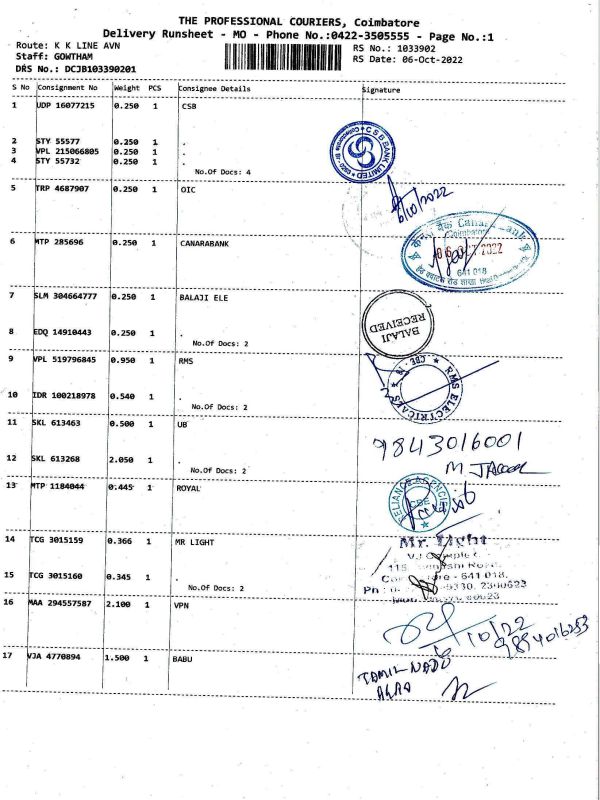 THE PROFESSIONAL COURIERS, Coimbatore
Delivery Runsheet - MO - Phone No.:0422-3505555 - Page No.:1
Route: K K LINE AVN
RS No.: 1033902
Staff: GOWTHAM
RS Date: 06-Oct-2022
DRS No.: DCJB103390201
S No Consignment No Weight PCS Consignee Details Signature
1 UDP 16077215 0.250 1 CSB
2 STY 55577 0.250 1 .
3 VPL 215066805 0.250 1 .
4 STY 55732 0.250 1 .
No.Of Docs: 4
CSB BANK LIMITED
5 TRP 4687907 0.250 1 OIC
6/10/2022
6 MTP 285696 0.250 1 CANARABANK
Canara Bank
Coimbatore
06 OCT 2022
641 018
7 SLM 304664777 0.250 1 BALAJI ELE
8 EDQ 14910443 0.250 1 .
No.Of Docs: 2
BALAJI
RECEIVED
9 VPL 519796845 0.950 1 RMS
10 IDR 100218978 0.540 1 .
No.Of Docs: 2
RMS ELECTRICALS
CBE
11 SKL 613463 0.500 1 UB
9843016001
12 SKL 613268 2.050 1 .
No.Of Docs: 2
13 MTP 1184044 0.445 1 ROYAL
RELIANCE AGENCIES
CBE
14 TCG 3015159 0.366 1 MR LIGHT
Mr. Light
641 018.
15 TCG 3015160 0.345 1 .
No.Of Docs: 2
16 MAA 294557587 2.100 1 VPN
10/22
17 VJA 4770894 1.500 1 BABU
TAMIL NADU